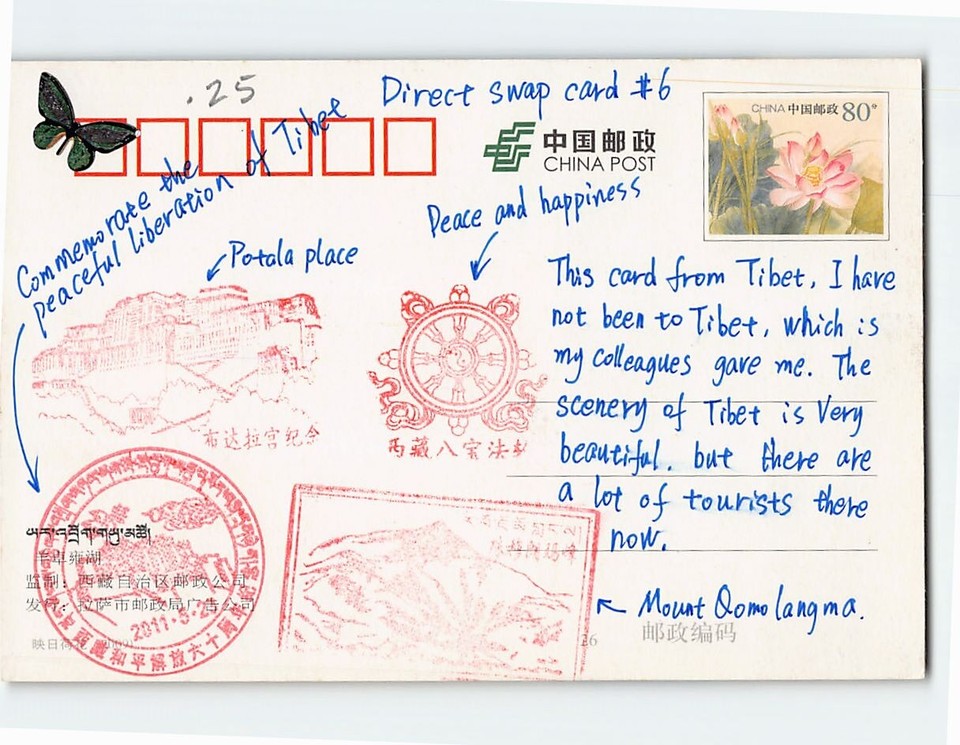 .25
Direct swap card #6
CHINA 中国邮政 80分
中国邮政
CHINA POST
Commemorate the
peaceful liberation of Tibet
Potala place
Peace and happiness
This card from Tibet, I have
not been to Tibet, which is
my colleagues gave me. The
scenery of Tibet is very
beautiful. but there are
a lot of tourists there
now.
布达拉宫纪念
西藏八宝法轮
ཡར་འབྲོག་གཡུ་མཚོ།
羊卓雍湖
监制：西藏自治区邮政公司
发行：拉萨市邮政局广告公司
2011.5.23
西藏和平解放六十周年
Mount Qomolangma.
邮政编码
映日荷花